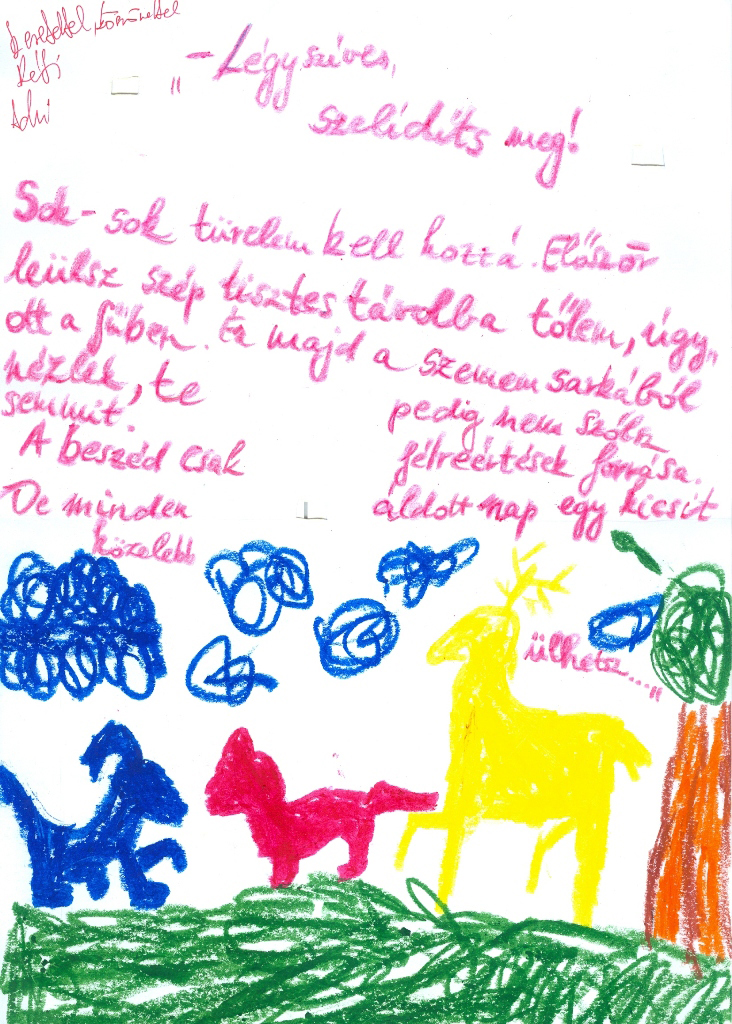 Szeretettel, köszönettel
Réfi
Adri
„ - Légy szíves,
szelídíts meg!
Sok-sok türelem kell hozzá. Először
leülsz szép tisztes távolba tőlem, úgy,
ott a fűben. Én majd a szemem sarkából
nézlek, te pedig nem szólsz
semmit.
A beszéd csak félreértések forrása.
De minden áldott nap egy kicsit
közelebb
ülhetsz..."